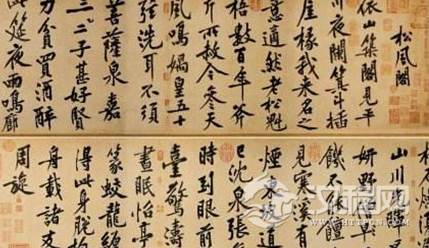 松風閣
依山築閣見平
川夜闌箕斗插
屋椽我來名之
意適然老松魁
梧數百年斧
斤所赦今參天
風鳴媧皇五十
弦洗耳不須
菩薩泉嘉
三二子甚好賢
力貧買酒醉
此筵夜雨鳴廊
枯石燥
山川光輝
妍野僧
饑不能饘
見寒溪有
煙東坡道
已沈泉張
時到眼前
臺驚濤
晝眠怡亭
篆蛟龍纏
得此身脫拘
舟載諸友
周旋